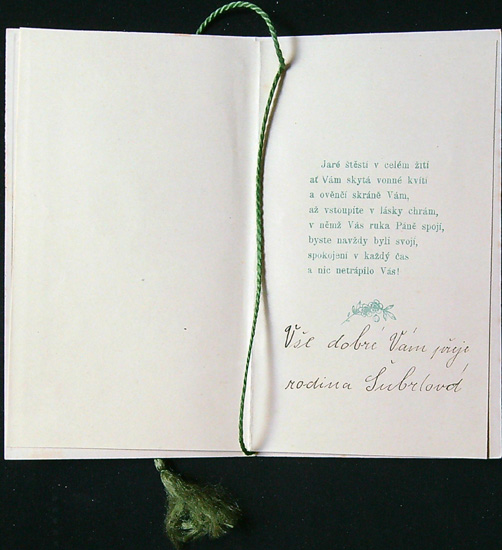 Jaré štěstí v celém žití
ať Vám skytá vonné kvítí
a ověnčí skráně Vám,
až vstoupíte v lásky chrám,
v němž Vás ruka Páně spojí,
byste navždy byli svojí,
spokojeni v každý čas
a nic netrápilo Vás!
Vše dobré Vám přeje
rodina Šubrtová